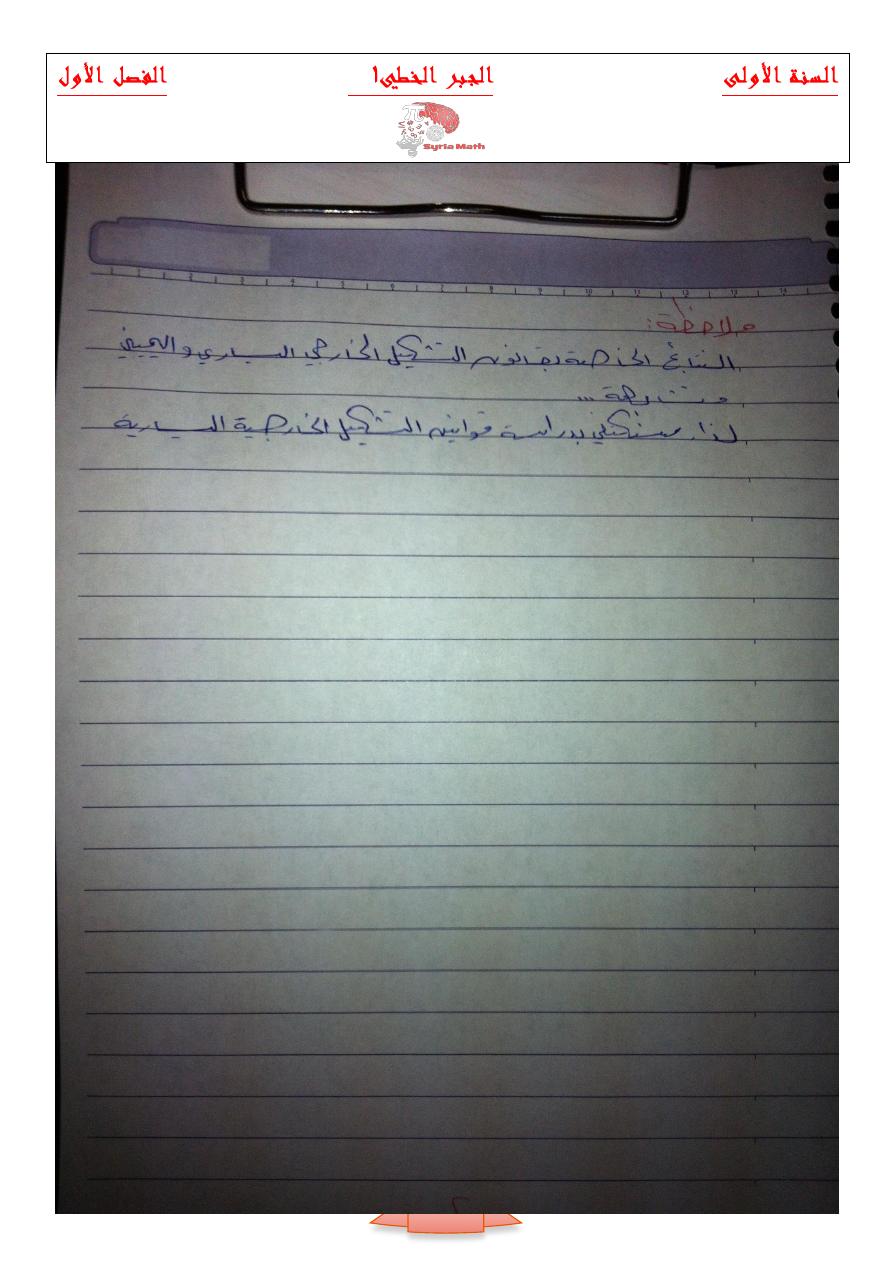 السنة الأولى الجبر الخطي١ الفصل الأول
Syria Math
1 2 3 4 5 6 7 8 9 10 11 12 13 14
ملاحظة:
النتائج الخاصة بقانون التشكيل الخارجي اليساري واليميني
متشابهة ...
لذا سنكتفي بدراسة قوانين التشكيل الخارجية اليسارية
٢